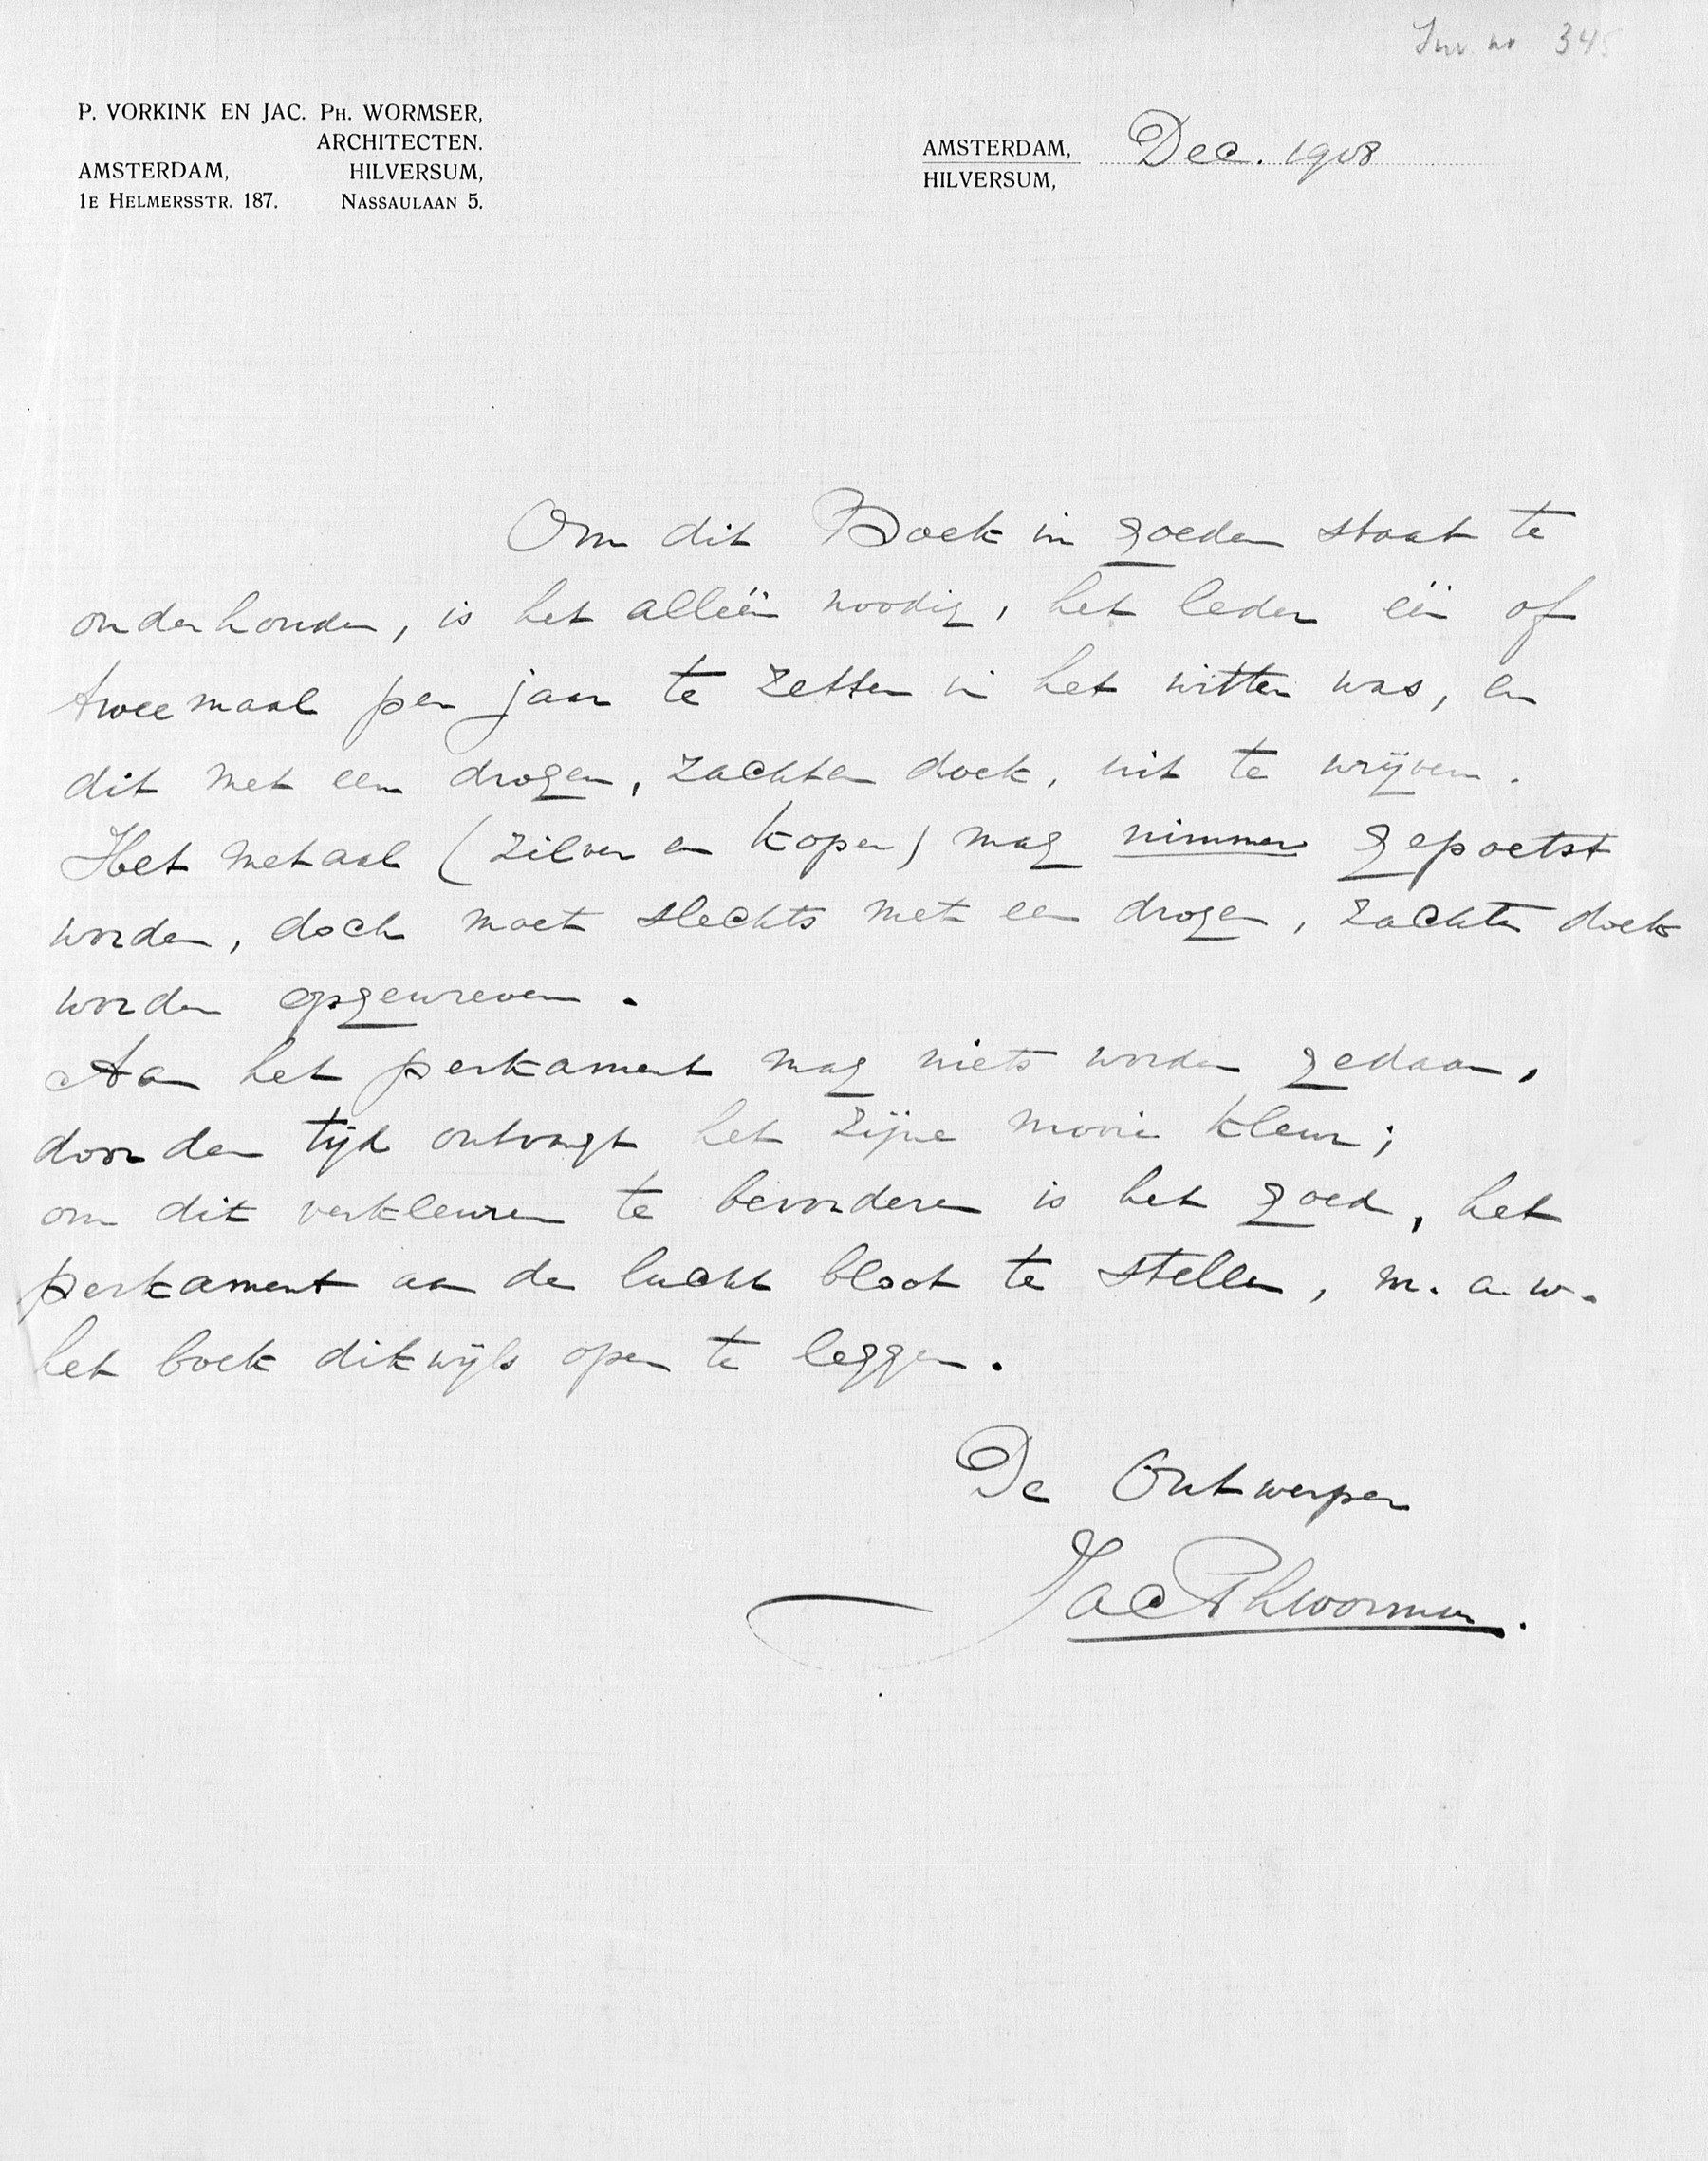 Inv. nr 345
P. VORKINK EN JAC. PH. WORMSER,
ARCHITECTEN.
AMSTERDAM, HILVERSUM,
1E HELMERSSTR. 187. NASSAULAAN 5.
AMSTERDAM, Dec. 1908
HILVERSUM,
Om dit Boek in goeden staat te
onderhouden, is het alléén noodig, het leder één of
tweemaal per jaar te zetten in het witten was, en
dit met een drogen, zachten doek, uit te wrijven.
Het metaal (zilver en koper) mag nimmer gepoetst
worden, doch moet slechts met een drogen, zachten doek
worden opgewreven.
Aan het perkament mag niets worden gedaan,
door den tijd ontvangt het zijne mooie kleur;
om dit verkleuren te bevorderen is het goed, het
perkament aan de lucht bloot te stellen, m.a.w.
het boek dikwijls open te leggen.
De Ontwerper
Jac Ph Wormser.